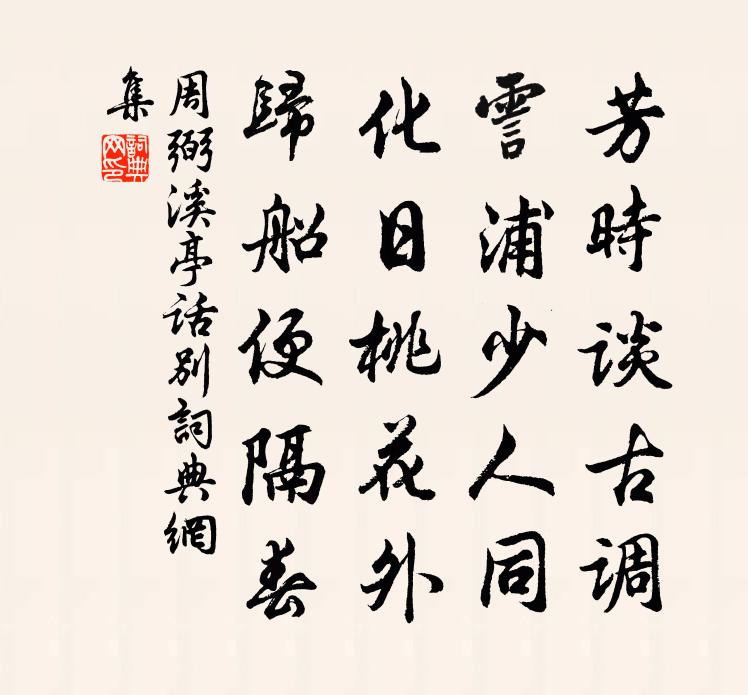 芳時談古調
霅浦少人同
化日桃花外
歸船便隔春
周弼溪亭話別詞典網
集
詞典
网印